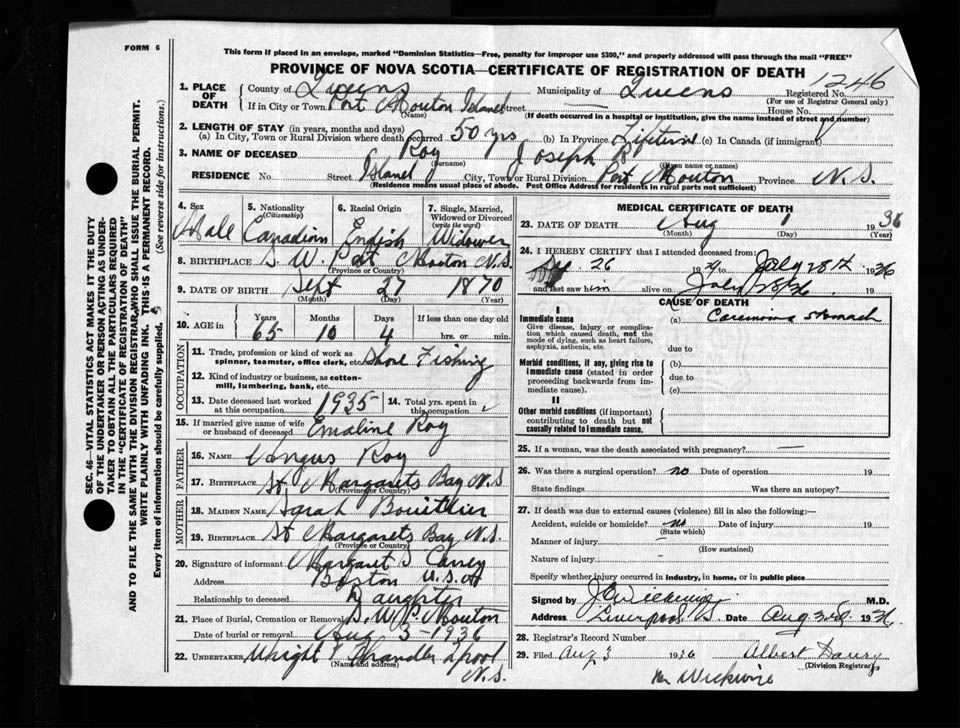 FORM 6
This form if placed in an envelope, marked "Dominion Statistics—Free, penalty for improper use $300," and properly addressed will pass through the mail "FREE"
PROVINCE OF NOVA SCOTIA—CERTIFICATE OF REGISTRATION OF DEATH
1246
SEC. 46—VITAL STATISTICS ACT MAKES IT THE DUTY
OF THE UNDERTAKER OR PERSON ACTING AS UNDER-
TAKER TO OBTAIN ALL THE PARTICULARS REQUIRED
IN THE "CERTIFICATE OF REGISTRATION OF DEATH"
AND TO FILE THE SAME WITH THE DIVISION REGISTRAR, WHO SHALL ISSUE THE BURIAL PERMIT.
WRITE PLAINLY WITH UNFADING INK. THIS IS A PERMANENT RECORD.
Every item of information should be carefully supplied. (See reverse side for instructions.)
1. PLACE OF DEATH County of Queens Municipality of Queens Registered No.
(For use of Registrar General only)
If in City or Town Port Mouton Island street House No.
(Name) (If death occurred in a hospital or institution, give the name instead of street and number)
2. LENGTH OF STAY (in years, months and days)
(a) In City, Town or Rural Division where death occurred 50 yrs (b) In Province Lifetime (c) In Canada (if immigrant)
3. NAME OF DECEASED Roy Joseph
(Surname) (Given name or names)
RESIDENCE No. Street Island City, Town or Rural Division Port Mouton Province N.S.
(Residence means usual place of abode. Post Office Address for residents in rural parts not sufficient)
4. Sex 5. Nationality (Citizenship) 6. Racial Origin 7. Single, Married, Widowed or Divorced (write the word)
Male Canadian English Widower
8. BIRTHPLACE S. W. Port Mouton N.S.
(Province or Country)
9. DATE OF BIRTH Sept 27 1870
(Month) (Day) (Year)
10. AGE in Years Months Days If less than one day old
65 10 4 hrs. or min.
OCCUPATION
11. Trade, profession or kind of work as spinner, teamster, office clerk, etc. Shore Fishing
12. Kind of industry or business, as cotton-mill, lumbering, bank, etc.
13. Date deceased last worked at this occupation 1935 14. Total yrs. spent in this occupation
15. If married give name of wife or husband of deceased Emaline Roy
FATHER
16. NAME Roy
17. BIRTHPLACE St Margarets Bay N.S
(Province or Country)
MOTHER
18. MAIDEN NAME Sarah Boutilier
19. BIRTHPLACE St Margarets Bay, N.S.
(Province or Country)
20. Signature of informant Margaret
Address Boston U.S.A
Relationship to deceased Daughter
21. Place of Burial, Cremation or Removal S.W. P. Mouton
Date of burial or removal Aug 3-1936
22. UNDERTAKER Wright & Chandler Lpool
(Name and address) N.S.
MEDICAL CERTIFICATE OF DEATH
23. DATE OF DEATH Aug 1 1936
(Month) (Day) (Year)
24. I HEREBY CERTIFY that I attended deceased from:
26 19 to July 28th 1936
and last saw him alive on July 28th
CAUSE OF DEATH
I
Immediate cause (a) Carcinoma stomach
Give disease, injury or complication which caused death, not the mode of dying, such as heart failure, asphyxia, asthenia, etc.
due to
Morbid conditions, if any, giving rise to immediate cause (stated in order proceeding backwards from immediate cause).
(b)
due to
(c)
II
Other morbid conditions (if important) contributing to death but not causally related to immediate cause.
25. If a woman, was the death associated with pregnancy? —
26. Was there a surgical operation? no Date of operation 19
State findings Was there an autopsy?
27. If death was due to external causes (violence) fill in also the following:—
Accident, suicide or homicide? no Date of injury 19
(State which)
Manner of injury —
(How sustained)
Nature of injury —
Specify whether injury occurred in industry, in home, or in public place
Signed by M.D.
Address Liverpool Date Aug 3rd 1936.
28. Registrar's Record Number
29. Filed Aug 3 1936 Albert
(Division Registrar)
per Wickwire